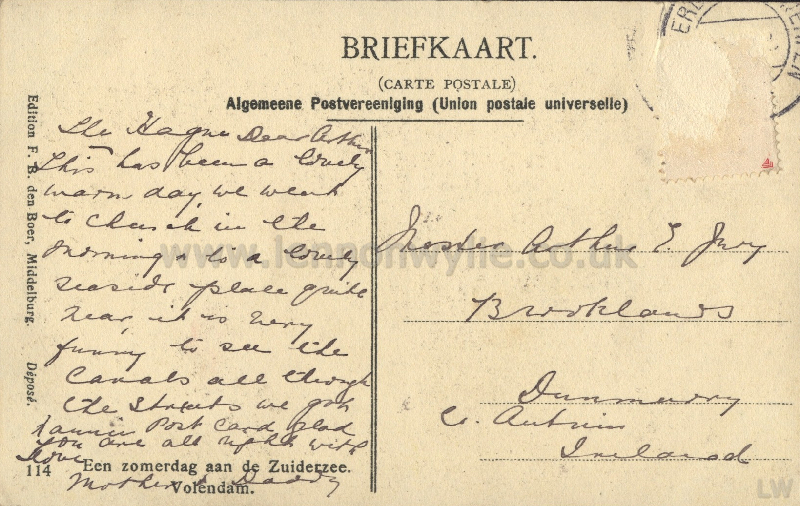 BRIEFKAART.
(CARTE POSTALE)
Algemeene Postvereeniging (Union postale universelle)
The Hague Dear Arthur
This has been a lovely
warm day, we went
to Church in the
morning & to a lovely
seaside place quite
near, it is very
funny to see the
Canals all through
the Streets we got
Post Card glad
you are all right with
love
Mother & Daddy
Master Arthur E
Brooklands
Dunmurry
Co. Antrim
Ireland
Edition F. B. den Boer, Middelburg. Déposé.
114 Een zomerdag aan de Zuiderzee.
Volendam.
www.lennonwylie.co.uk
LW